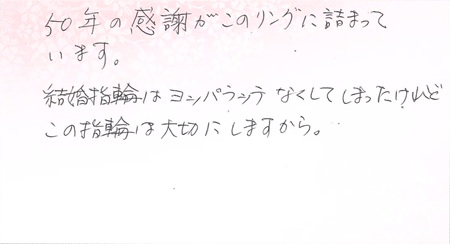 50年の感謝がこのリングに詰まって
います。
結婚指輪はヨッパラッテなくしてしまったけれど
この指輪は大切にしますから。